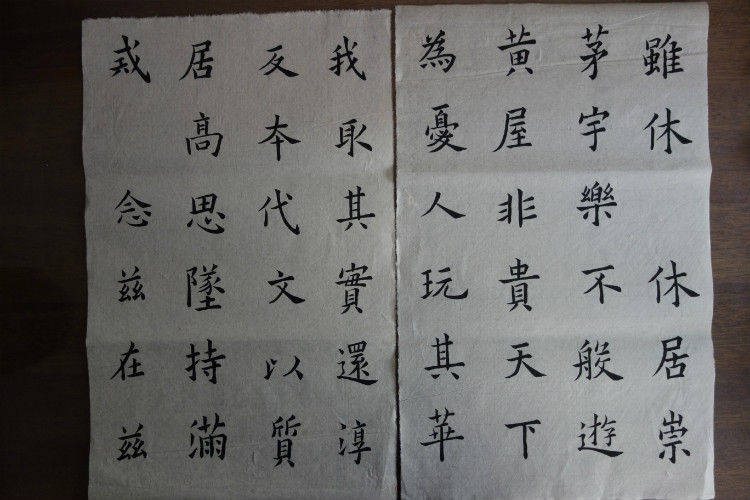 雖休 休居崇
茅宇樂不般遊
黄屋非貴天下
為憂人玩其華
我取其實還淳
反本代文以質
居高思墜持滿
戒 念茲在茲